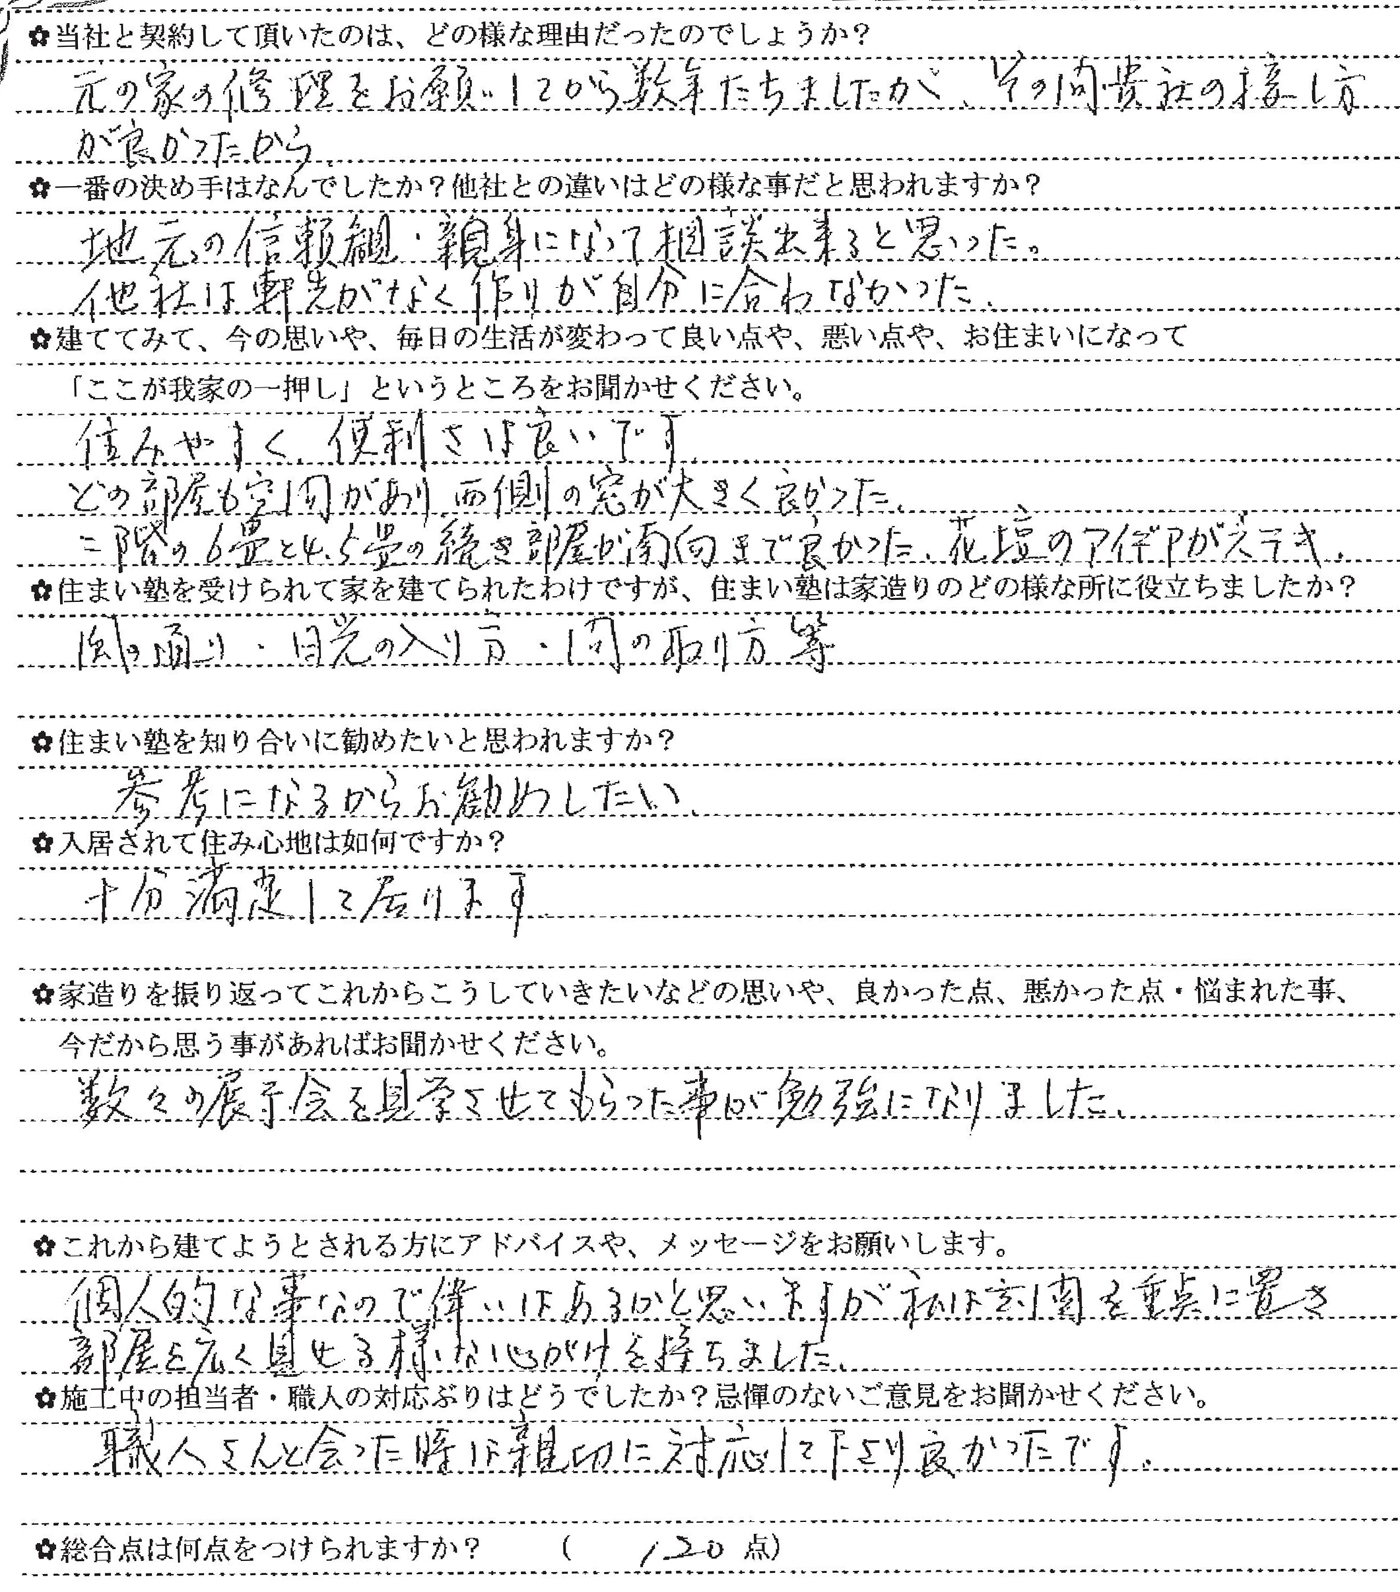 ✿当社と契約して頂いたのは、どの様な理由だったのでしょうか？
元の家の修理をお願いしてから数年たちましたが、その間貴社の接し方
が良かったから、
✿一番の決め手はなんでしたか？他社との違いはどの様な事だと思われますか？
地元の信頼観・親身になって相談出来ると思った。
他社は軒先がなく作りが自分に合わなかった、
✿建ててみて、今の思いや、毎日の生活が変わって良い点や、悪い点や、お住まいになって
「ここが我家の一押し」というところをお聞かせください。
住みやすく、便利さは良いです
どの部屋も空間があり西側の窓が大きく良かった、
二階の6畳と4.5畳の続き部屋が南向きで良かった、花壇のアイデアがステキ、
✿住まい塾を受けられて家を建てられたわけですが、住まい塾は家造りのどの様な所に役立ちましたか？
風の通り・日光の入り方・間の取り方等
✿住まい塾を知り合いに勧めたいと思われますか？
参考になるからお勧めしたい、
✿入居されて住み心地は如何ですか？
十分満足して居ります
✿家造りを振り返ってこれからこうしていきたいなどの思いや、良かった点、悪かった点・悩まれた事、
今だから思う事があればお聞かせください。
数々の展示会を見学させてもらった事が勉強になりました、
✿これから建てようとされる方にアドバイスや、メッセージをお願いします。
個人的な事なので違いはあるかと思いますが私は玄関を重点に置き
部屋を広く見せる様な心がけを持ちました、
✿施工中の担当者・職人の対応ぶりはどうでしたか？忌憚のないご意見をお聞かせください。
職人さんと会った時は親切に対応して下さり良かったです、
✿総合点は何点をつけられますか？　（　120 点）